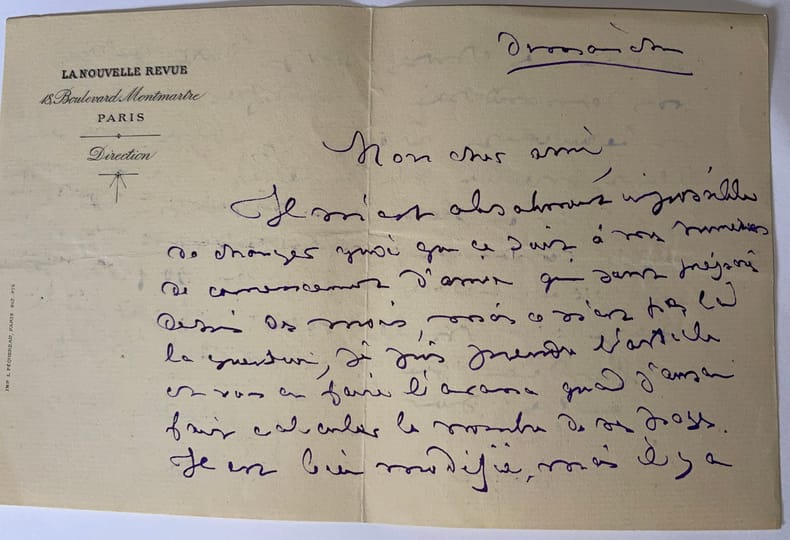 LA NOUVELLE REVUE
18, Boulevard Montmartre
PARIS
Direction
Dimanche
Mon cher ami,
Il m'est absolument impossible
de changer quoi que ce soit à nos numéros
de commencement d'année qui sont préparés
depuis des mois, mais ce n'est pas là
la question, je puis prendre l'article
et vous en faire l'avance quand j'aurai
fait calculer le nombre de ses pages.
Il est bien modifié, mais il y a